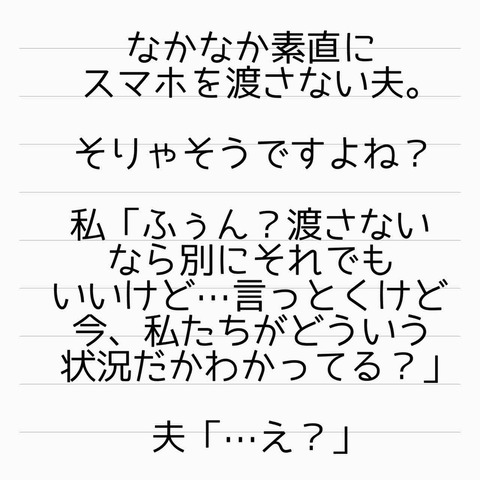 なかなか素直に
スマホを渡さない夫。
そりゃそうですよね？
私「ふぅん？渡さない
なら別にそれでも
いいけど…言っとくけど
今、私たちがどういう
状況だかわかってる？」
夫「…え？」